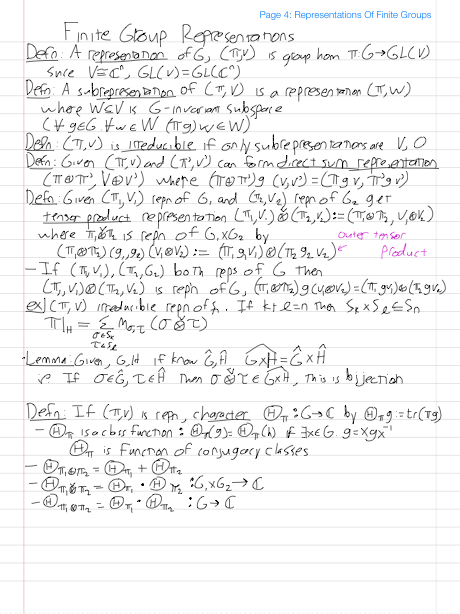 Page 4: Representations Of Finite Groups
Finite Group Representations
Defn: A representation of G, (π,V) is group hom π:G→GL(V)
Since V≅ℂⁿ, GL(V)=GL(ℂⁿ)
Defn: A subrepresentation of (π,V) is a representation (π,W)
where W⊆V is G-invariant subspace
(∀g∈G ∀w∈W (πg)w∈W)
Defn: (π,V) is irreducible if only subrepresentations are V, 0
Defn: Given (π,V) and (π',V') can form direct sum representation
(π⊕π', V⊕V') where (π⊕π')g (v,v') = (πg v, π'g v')
Defn: Given (π₁,V₁) repn of G₁ and (π₂,V₂) repn of G₂ get
tensor product representation (π₁,V₁)⊗(π₂,V₂):=(π₁⊗π₂, V₁⊗V₂)
where π₁⊗π₂ is repn of G₁×G₂ by
outer tensor product
(π₁⊗π₂)(g₁,g₂)(v₁⊗v₂) := (π₁g₁v₁)⊗(π₂g₂v₂)
- If (π₁,V₁), (π₂,G₂) both reps of G then
(π₁,V₁)⊗(π₂,V₂) is repn of G, (π₁⊗π₂)g(v₁⊗v₂)=(π₁gv₁)⊗(π₂gv₂)
ex) (π,V) irreducible repn of. If k+l=n then Sₖ×Sₗ⊆Sₙ
π|_H = Σ m_{σ,τ} (σ⊗τ)
σ∈Sₖ
τ∈Sₗ
- Lemma: Given G,H if know Ĝ,Ĥ G×H^=Ĝ×Ĥ
If σ∈Ĝ, τ∈Ĥ then σ⊗τ∈G×H^, this is bijection
Defn: If (π,V) is repn, character Θ_π:G→ℂ by Θ_π g:=tr(πg)
- Θ_π is a class function: Θ_π(g)=Θ_π(h) if ∃x∈G. g=xgx⁻¹
Θ_π is function of conjugacy classes
- Θ_{π₁⊕π₂} = Θ_{π₁} + Θ_{π₂}
- Θ_{π₁⊗π₂} = Θ_{π₁} · Θ_{π₂} : G₁×G₂→ℂ
- Θ_{π₁⊗π₂} = Θ_{π₁} · Θ_{π₂} : G→ℂ